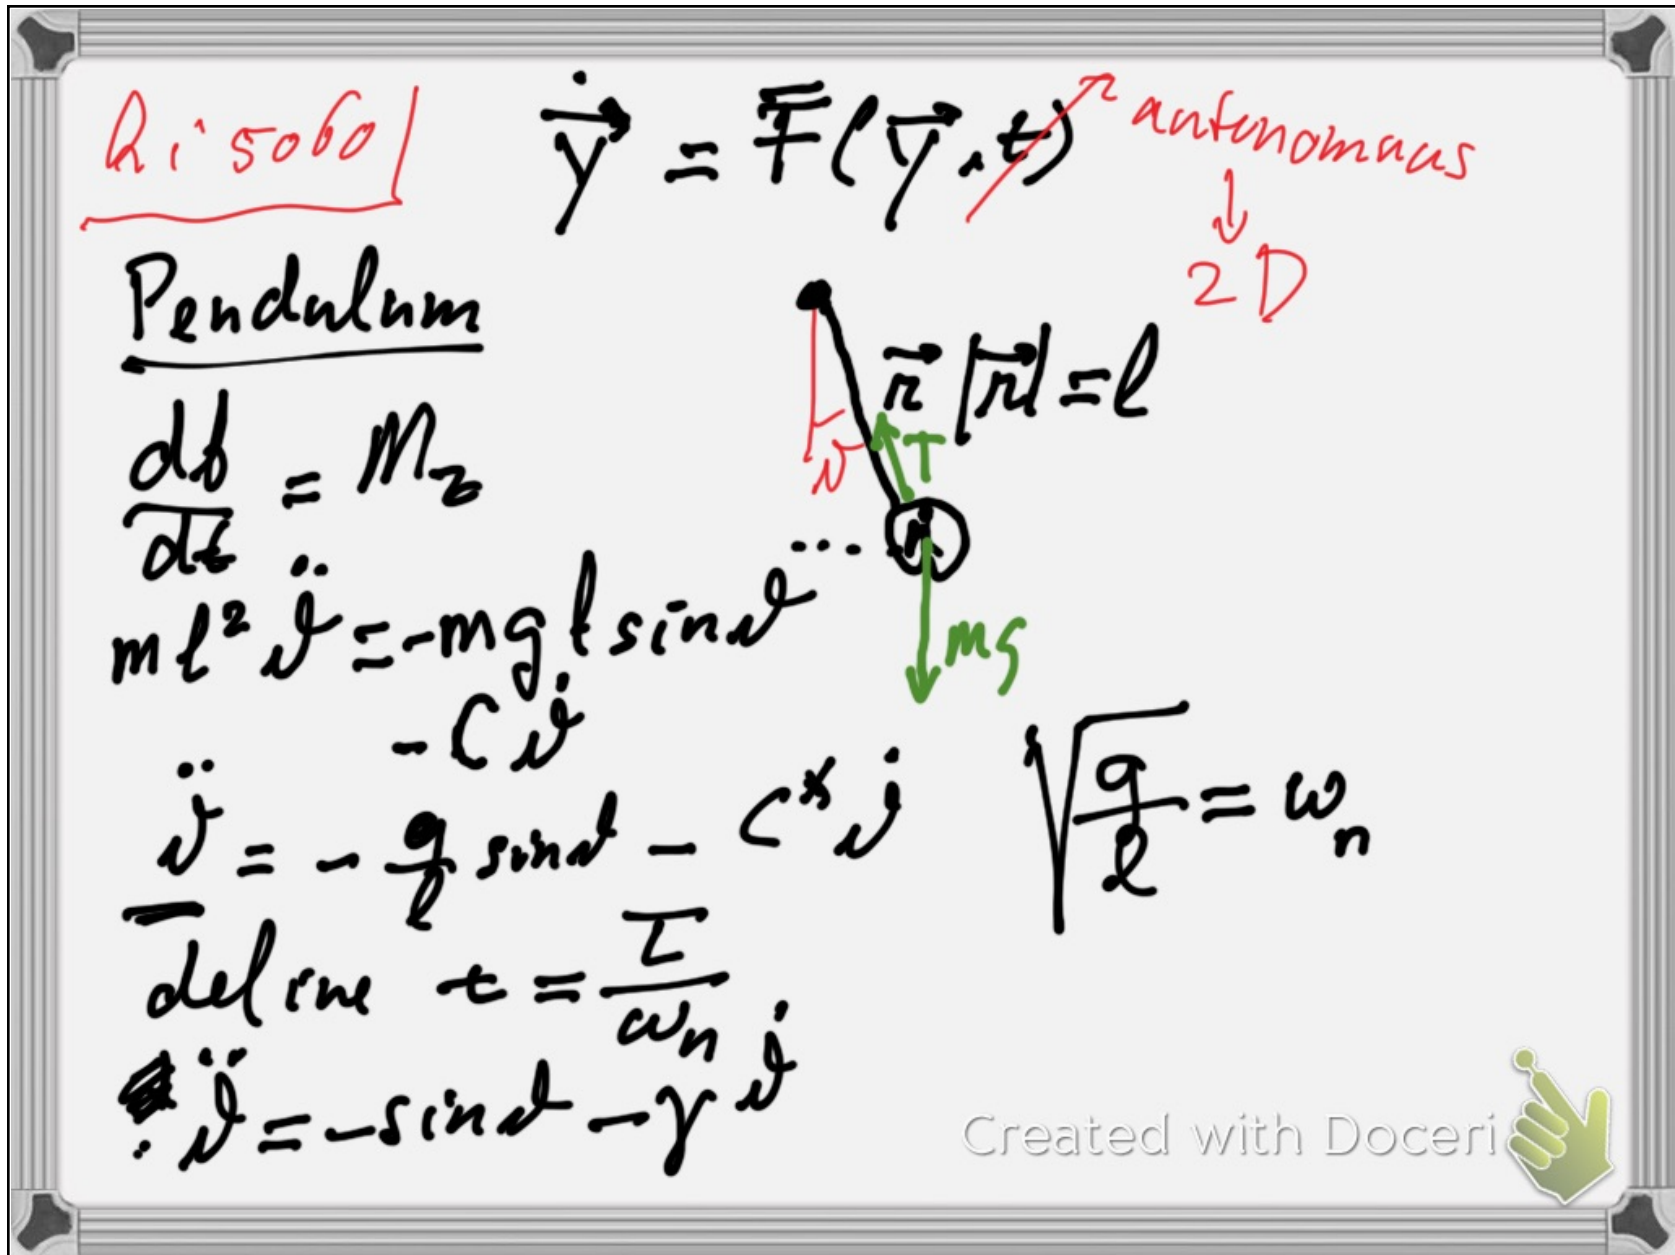 $\dot{\vec{y}} = \vec{F}(\vec{y}, t)$ autonomous
↓
2D
Pendulum
$\vec{r}$ $|\vec{r}| = l$
$\vartheta$
T
m
mg
$= M_z$
$ml^2\ddot{\vartheta} = -mgl\sin\vartheta$ ...
$-C\dot{\vartheta}$
$\ddot{\vartheta} = -\frac{g}{l}\sin\vartheta - C^*\dot{\vartheta}$
$\sqrt{\frac{g}{l}} = \omega_n$
define $t = \frac{\tau}{\omega_n}$
$\ddot{\vartheta} = -\sin\vartheta - \gamma\dot{\vartheta}$
Created with Doceri